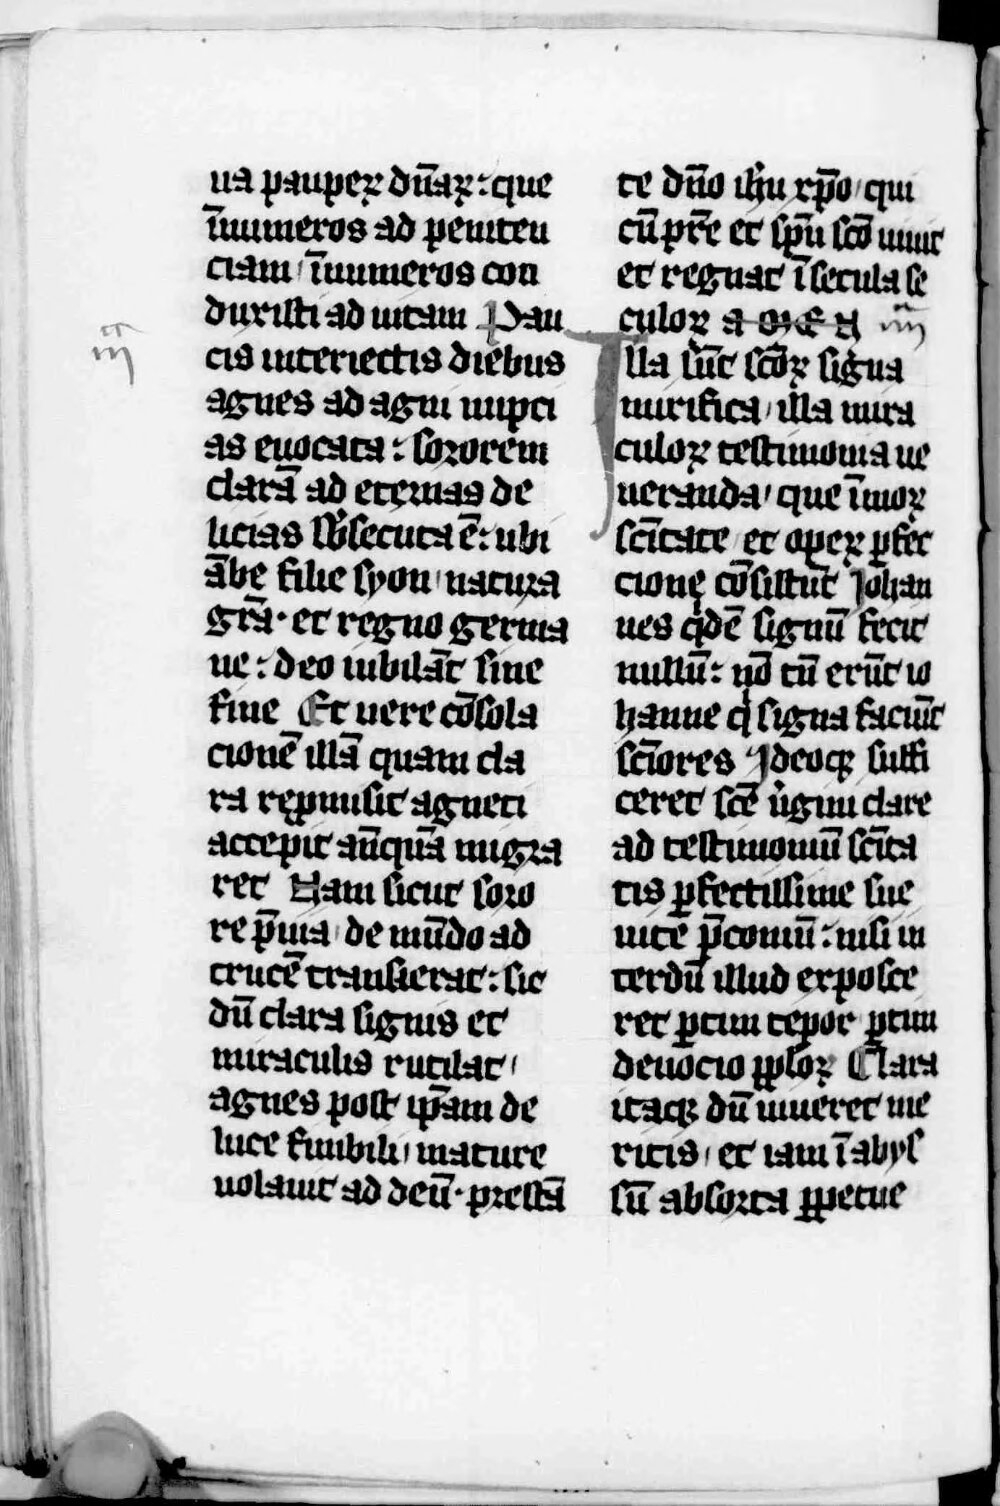 ua pauperꝝ dn̄aꝝ: que
īnumeros ad peniten
ciam / īnumeros con
duxisti ad uitam Pau
iij
cis interiectis diebus
agnes ad agni nupci
as euocata: sororem
clarā ad eternas de
licias subsecuta ē: ubi
ābe filie syon / natura
grā· et regno germa
ne: deo iubilāt sine
fine Et uere cōsola
cionē illā quam cla
ra repmisit agneti
accepit an̄quā migra
ret Nam sicut soro
re p̄uia / de mūdo ad
crucē transierat: sic
dū clara signis et
miraculis rutilat /
agnes post ip̄am de
luce funibili / mature
uolauit ad deū· prestā
te dn̄o ihū xp̄o / qui
cū pr̄e et sp̄u scō uiuit
et regnat ī secula se
culoꝝ amen iiij
Illa sūt scōꝝ signa
mirifica / illa mira
culoꝝ testimonia ue
neranda / que ī moꝝ
scītate et operꝝ ꝑfec
cione cōsistūt Johan
nes qͥdē signū fecit
nullū: nō tn̄ erūt io
hanne qͥ signa faciūt
scīores Jdeoqꝫ suffi
ceret scē uͥgini clare
ad testimoniū scīta
tis ꝑfectissime sue
uite p̄coniū: nisi in
terdū illud exposce
ret ꝑtim tepor ꝑtim
deuocio pploꝝ Clara
itaqꝫ dū uiueret me
ritis / et iam ī abys
sū absorta ꝑpetue